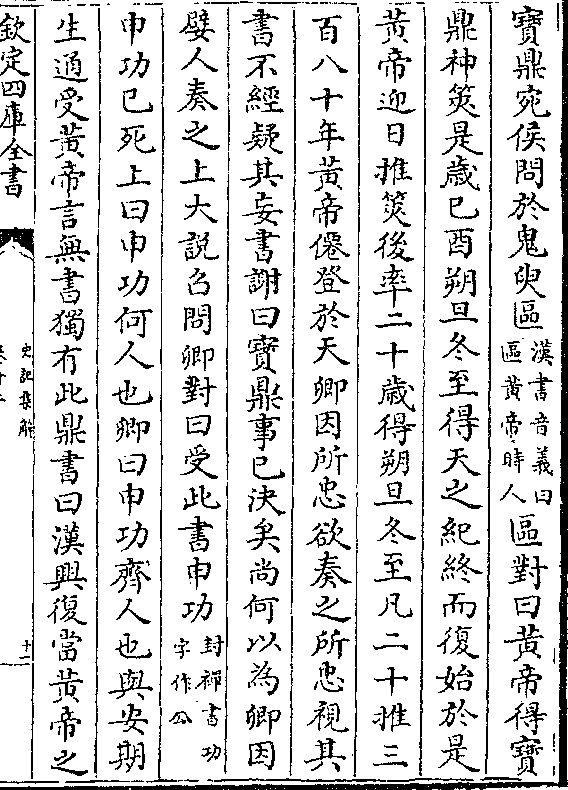 寳鼎宛侯問於鬼臾區漢書音義曰區黄帝時人區對曰黄帝得寳
鼎神筴是歳已酉朔旦冬至得天之紀終而復始於是
黄帝迎日推筴後率二十歳得朔旦冬至凡二十推三
百八十年黄帝僊登於天卿因所忠欲奏之所忠視其
書不經疑其妄書謝曰寳鼎事已決矣尚何以為卿因
嬖人奏之上大説召問卿對曰受此書申功封禪書功字作公
申功已死上曰申功何人也卿曰申功齊人也與安期
生通受黄帝言無書獨有此鼎書曰漢興復當黄帝之
欽定四庫全書
史記集解
十一